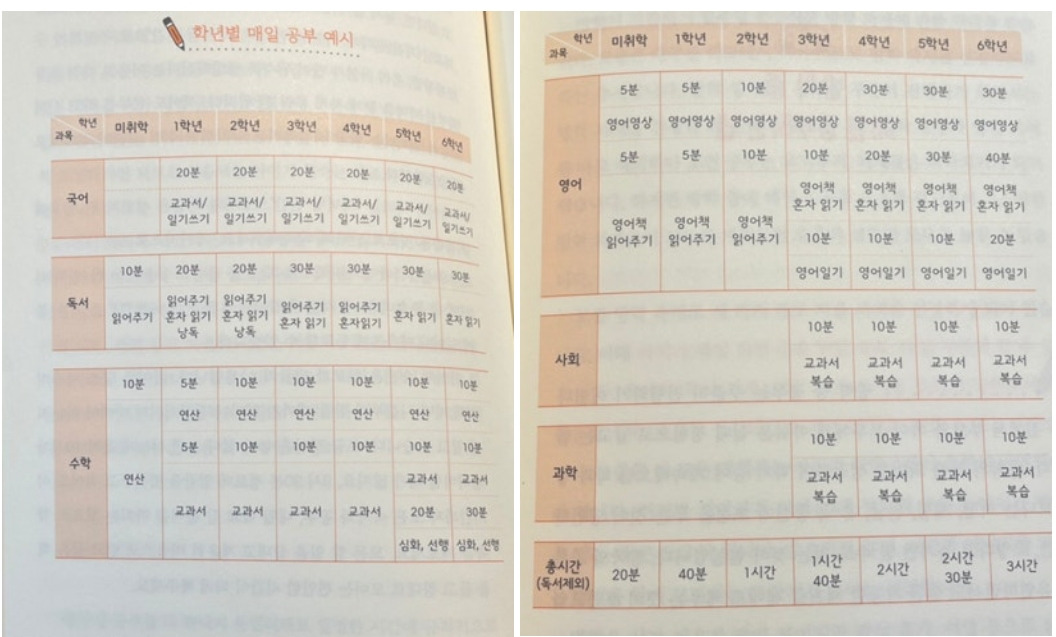 학년별 매일 공부 예시
학년
과목 미취학 1학년 2학년 3학년 4학년 5학년 6학년
국어
20분 20분 20분 20분 20분 20분
교과서/ 교과서/ 교과서/ 교과서/ 교과서/ 교과서/
일기쓰기 일기쓰기 일기쓰기 일기쓰기 일기쓰기 일기쓰기
독서
10분 20분 20분 30분 30분 30분 30분
읽어주기 읽어주기 읽어주기 읽어주기 읽어주기 혼자 읽기 혼자 읽기
혼자 읽기 혼자 읽기 혼자 읽기 혼자읽기
낭독 낭독
수학
10분 5분 10분 10분 10분 10분 10분
연산 연산 연산 연산 연산 연산 연산
5분 10분 10분 10분 10분 10분
교과서 교과서 교과서 교과서 교과서 교과서
20분 30분
심화, 선행 심화, 선행
학년
과목 미취학 1학년 2학년 3학년 4학년 5학년 6학년
영어
5분 5분 10분 20분 30분 30분 30분
영어영상 영어영상 영어영상 영어영상 영어영상 영어영상 영어영상
5분 5분 10분 10분 20분 30분 40분
영어책 영어책 영어책 영어책 영어책 영어책 영어책
읽어주기 읽어주기 읽어주기 혼자 읽기 혼자 읽기 혼자 읽기 혼자 읽기
10분 10분 10분 20분
영어일기 영어일기 영어일기 영어일기
사회
10분 10분 10분 10분
교과서 교과서 교과서 교과서
복습 복습 복습 복습
과학
10분 10분 10분 10분
교과서 교과서 교과서 교과서
복습 복습 복습 복습
총시간
(독서제외) 20분 40분 1시간 1시간 2시간 2시간 3시간
40분 30분